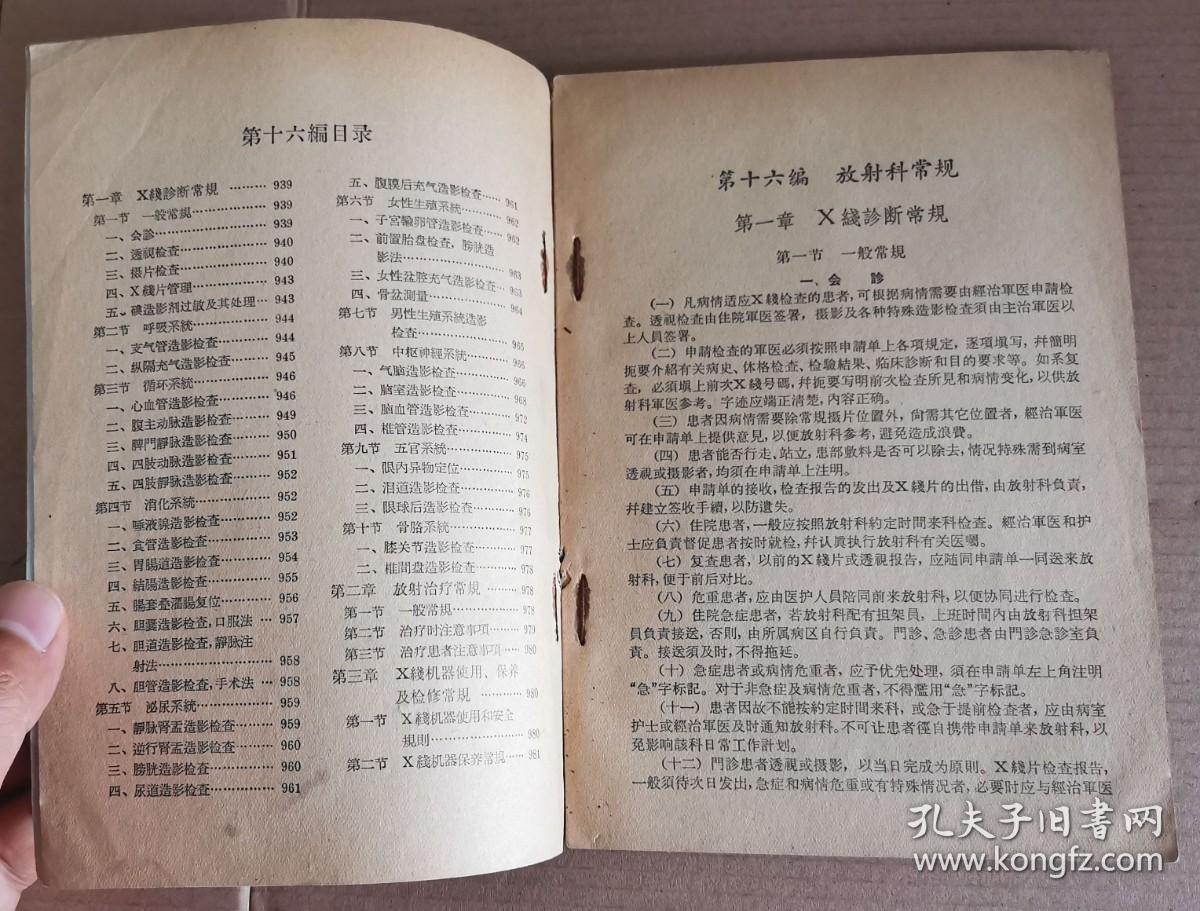 第十六編目录
第一章　X綫診断常規 ……… 939
第一节　一般常規……………… 939
一、会診……………………… 939
二、透視检查………………… 940
三、摄片检查………………… 940
四、X綫片管理……………… 943
五、碘造影剂过敏及其处理… 943
第二节　呼吸系統……………… 944
一、支气管造影检查………… 944
二、纵隔充气造影检查……… 945
第三节　循环系統……………… 946
一、心血管造影检查………… 946
二、腹主动脉造影检查……… 949
三、脾門靜脉造影检查……… 950
四、四肢动脉造影检查……… 951
五、四肢靜脉造影检查……… 952
第四节　消化系統……………… 952
一、唾液腺造影检查………… 952
二、食管造影检查…………… 953
三、胃腸道造影检查………… 954
四、結腸造影检查…………… 955
五、腸套叠灌腸复位………… 956
六、胆囊造影检查，口服法 … 957
七、胆道造影检查，靜脉注
射法………………………… 958
八、胆管造影检查，手术法 … 958
第五节　泌尿系統……………… 959
一、靜脉腎盂造影检查……… 959
二、逆行腎盂造影检查……… 960
三、膀胱造影检查…………… 960
四、尿道造影检查…………… 961
五、腹膜后充气造影检查…… 961
第六节　女性生殖系統………… 962
一、子宮輸卵管造影检查…… 962
二、前置胎盘检查，膀胱造
影法………………………… 963
三、女性盆腔充气造影检查… 963
四、骨盆測量………………… 964
第七节　男性生殖系統造影
检查…………………… 965
第八节　中枢神經系統………… 966
一、气脑造影检查…………… 966
二、脑室造影检查…………… 968
三、脑血管造影检查………… 972
四、椎管造影检查…………… 974
第九节　五官系統……………… 975
一、眼内异物定位…………… 975
二、泪道造影检查…………… 976
三、眼球后造影检查………… 976
第十节　骨骼系統……………… 977
一、膝关节造影检查………… 977
二、椎間盘造影检查………… 978
第二章　放射治疗常規 ……… 978
第一节　一般常規……………… 978
第二节　治疗时注意事項……… 979
第三节　治疗患者注意事項…… 980
第三章　X綫机器使用、保养
及检修常規 ………… 980
第一节　X綫机器使用和安全
規則…………………… 980
第二节　X綫机器保养常規…… 981
第十六编　放射科常规
第一章　X綫診断常規
第一节　一般常規
一、会　診
（一）凡病情适应X綫检查的患者，可根据病情需要由經治軍医申請检
查。透視检查由住院軍医签署，摄影及各种特殊造影检查須由主治軍医以
上人員签署。
（二）申請检查的軍医必須按照申請单上各項規定，逐項填写，幷簡明
扼要介紹有关病史、体格检查、检驗結果、临床診断和目的要求等。如系复
查，必須填上前次X綫号碼，幷扼要写明前次检查所見和病情变化，以供放
射科軍医参考。字迹应端正清楚，内容正确。
（三）患者因病情需要除常規摄片位置外，尙需其它位置者，經治軍医
可在申請单上提供意見，以便放射科参考，避免造成浪費。
（四）患者能否行走、站立，患部敷料是否可以除去，情况特殊需到病室
透視或摄影者，均須在申請单上注明。
（五）申請单的接收，检查报告的发出及X綫片的出借，由放射科負責，
幷建立签收手續，以防遺失。
（六）住院患者，一般应按照放射科約定时間来科检查。經治軍医和护
士应負責督促患者按时就检，幷认眞执行放射科有关医囑。
（七）复查患者，以前的X綫片或透視报告，应随同申請单一同送来放
射科，便于前后对比。
（八）危重患者，应由医护人員陪同前来放射科，以便协同进行检查。
（九）住院急症患者，若放射科配有担架員，上班时間内由放射科担架
員負責接送，否則，由所属病区自行負責。門診、急診患者由門診急診室負
責。接送須及时，不得拖延。
（十）急症患者或病情危重者，应予优先处理，須在申請单左上角注明
“急”字标記。对于非急症及病情危重者，不得濫用“急”字标記。
（十一）患者因故不能按約定时間来科，或急于提前检查者，应由病室
护士或經治軍医及时通知放射科。不可让患者徑自携带申請单来放射科，以
免影响該科日常工作計划。
（十二）門診患者透視或摄影，以当日完成为原則。X綫片检查报告，
一般須待次日发出，急症和病情危重或有特殊情况者，必要时应与經治軍医
孔夫子旧书网
www.kongfz.com